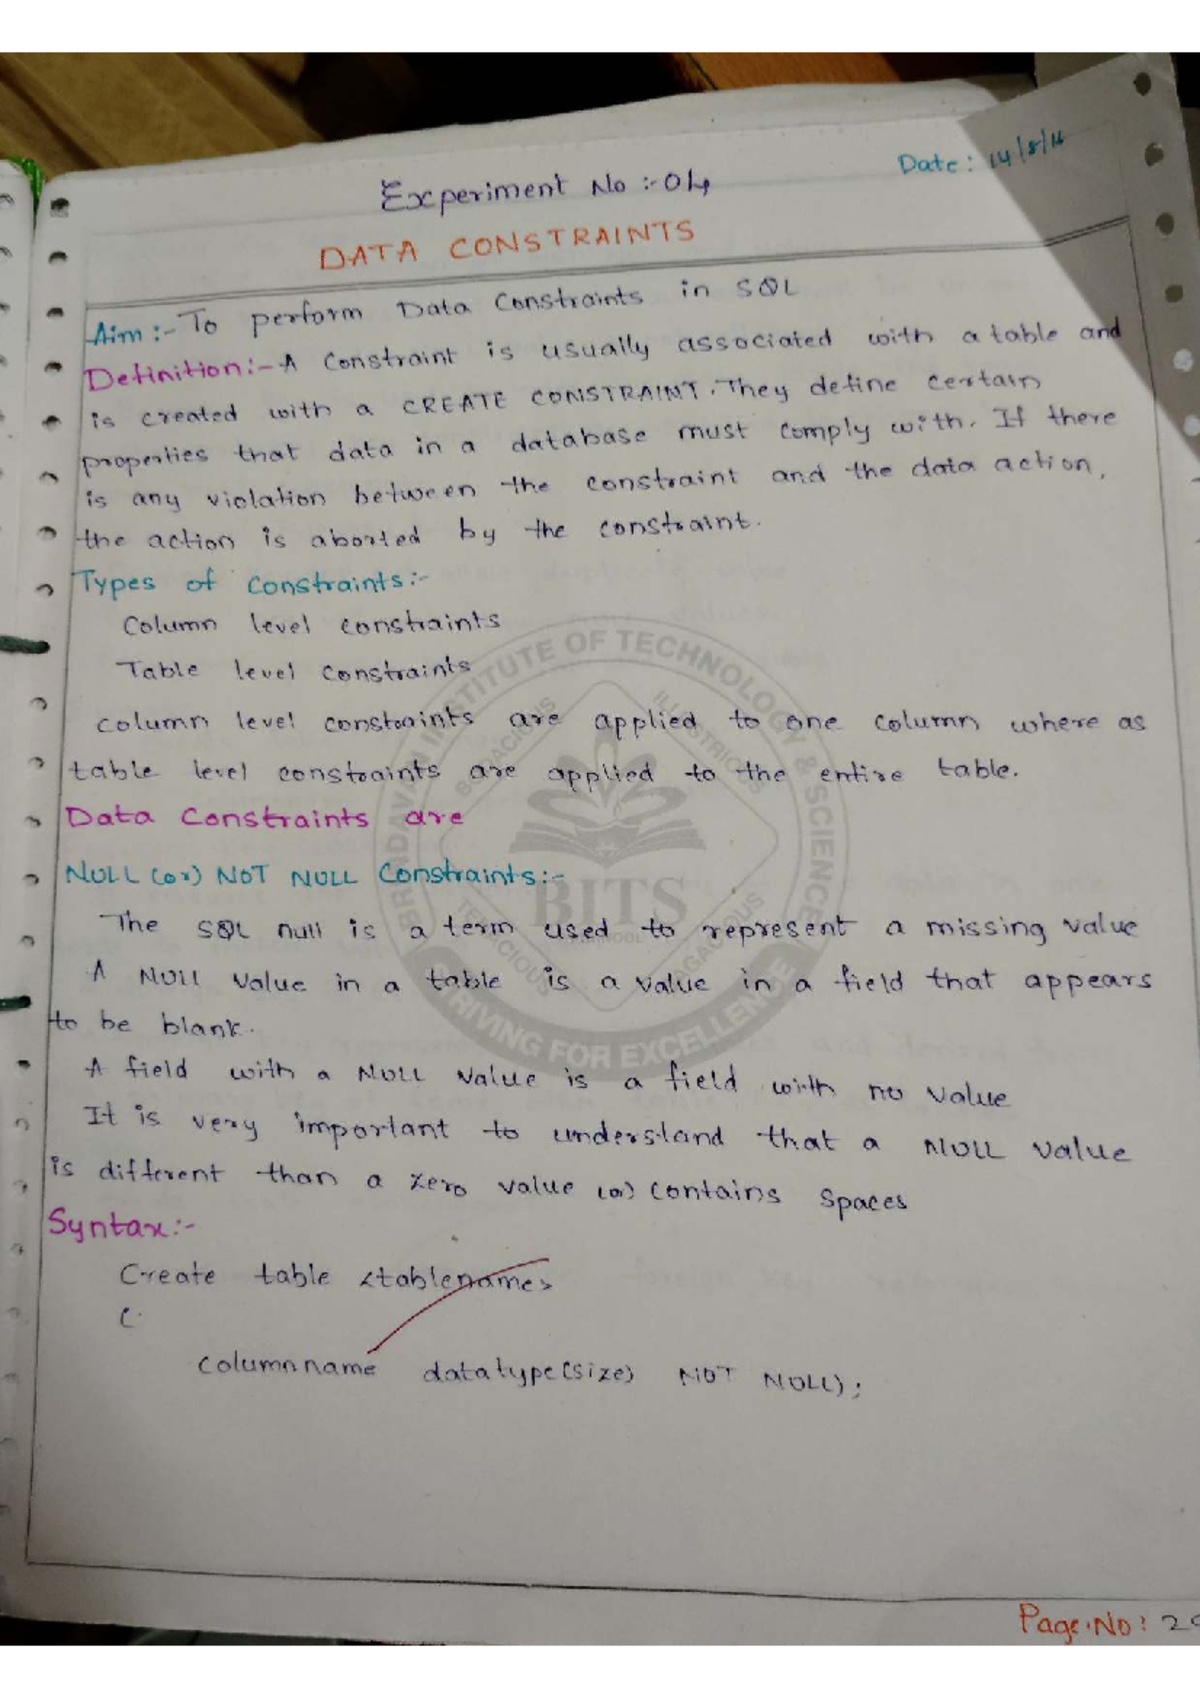 Date: 14/8/
Experiment No :- 04
DATA CONSTRAINTS
Aim :- To perform Data Constraints in SQL
Definition :- A Constraint is usually associated with a table and
is created with a CREATE CONSTRAINT. They define certain
properties that data in a database must comply with. If there
is any violation between the constraint and the data action,
the action is aborted by the constraint.
Types of Constraints:-
Column level constraints
Table level constraints
column level constraints are applied to one column where as
table level constraints are applied to the entire table.
Data Constraints are
NULL (or) NOT NULL Constraints:-
The SQL null is a term used to represent a missing value
A NULL value in a table is a value in a field that appears
to be blank.
A field with a NULL value is a field with no value
It is very important to understand that a NULL value
is different than a zero value (or) contains spaces
Syntax:-
Create table <tablename>
(
columnname datatype(size) NOT NULL);
Page.No: 2
BRINDAVAN INSTITUTE OF TECHNOLOGY & SCIENCE
SAGACIOUS
ILLUSTRIOUS
BITS
TENACIOUS
SAGACIOUS
STRIVING FOR EXCELLENCE